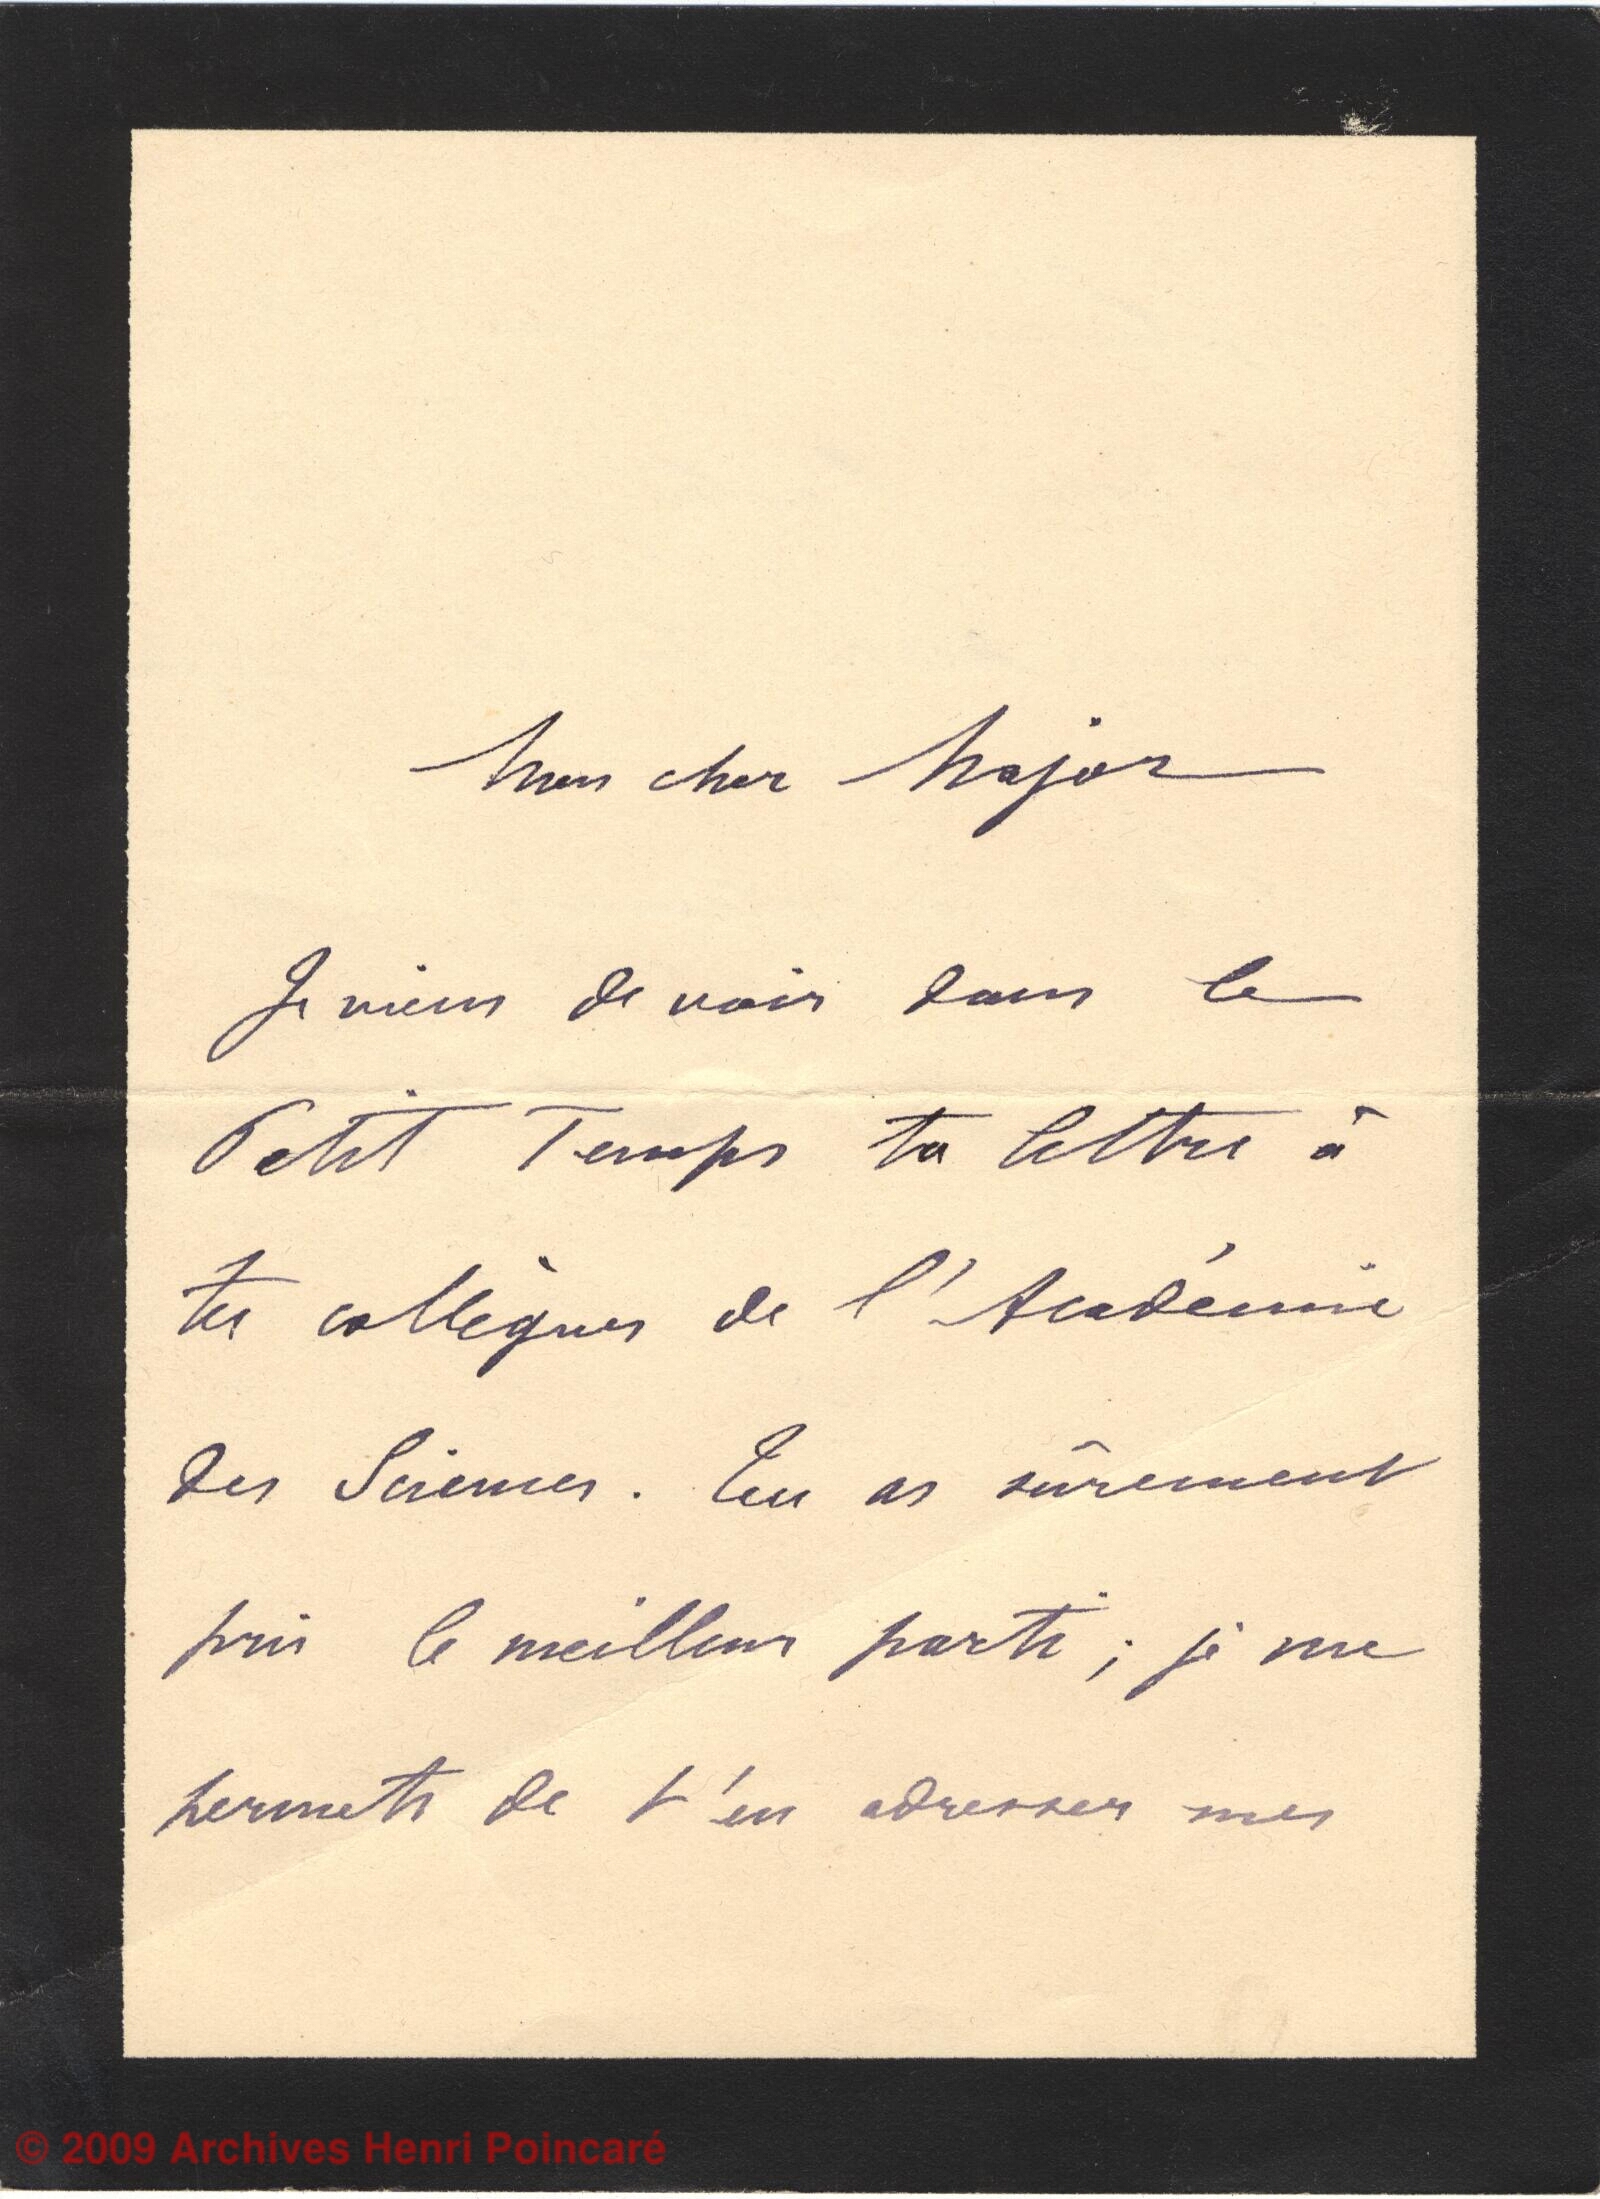 Mon cher Major
Je viens de voir dans le
Petit Temps ta lettre à
tes collègues de l'Académie
des Sciences. Tu as sûrement
pris le meilleur parti ; je me
permets de t'en adresser mes
© 2009 Archives Henri Poincaré